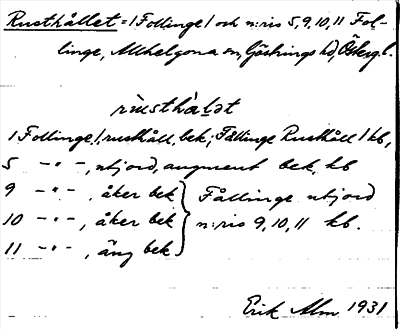 Rusthållet = 1 Follinge 1 och n:ris 5, 9, 10, 11 Fol-
linge, Allhelgona sn, Göstrings hd, Östergl.
rùsthàlət
1 Follinge 1, rusthåll, bek; Fållinge Rusthåll 1 kb,
5 -"-, utjord, augment bek, kb
9 -"-, åker bek } Fållinge utjord
10 -"-, åker bek } n:ris 9, 10, 11 kb.
11 -"-, äng bek }
Erik Alm 1931